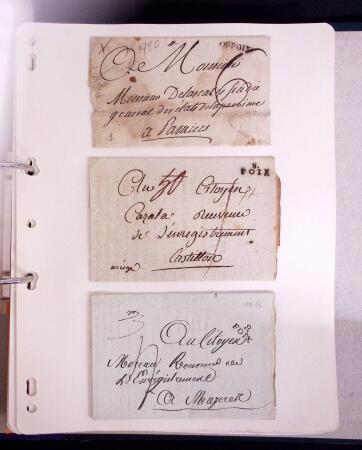 1780
DEFOIX
A Monsieur
6
Monsieur Delascazes sindic
general des états de la province
à Pamiers
8.
FOIX
Au 50 Citoyen
Cazala Receveur
de L'enregistrement
Castillon
ariege
9.
FOIX
Au Citoyen
Moreau Receveur de
L'Enregistrement
A Mazeres